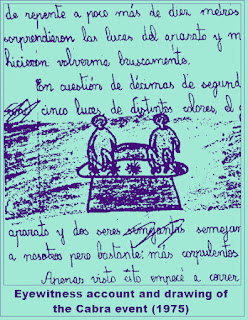 de repente a poco más de diez metros
sorprendieron las luces del aparato y m
hicieron volverme bruscamente.
En cuestión de décimas de segund
cinco luces de distintos colores, el
aparato y dos seres semejantes semejan
a nosotros pero bastante más corpulentos
Apenas visto esto empecé a correr
Eyewitness account and drawing of
the Cabra event (1975)